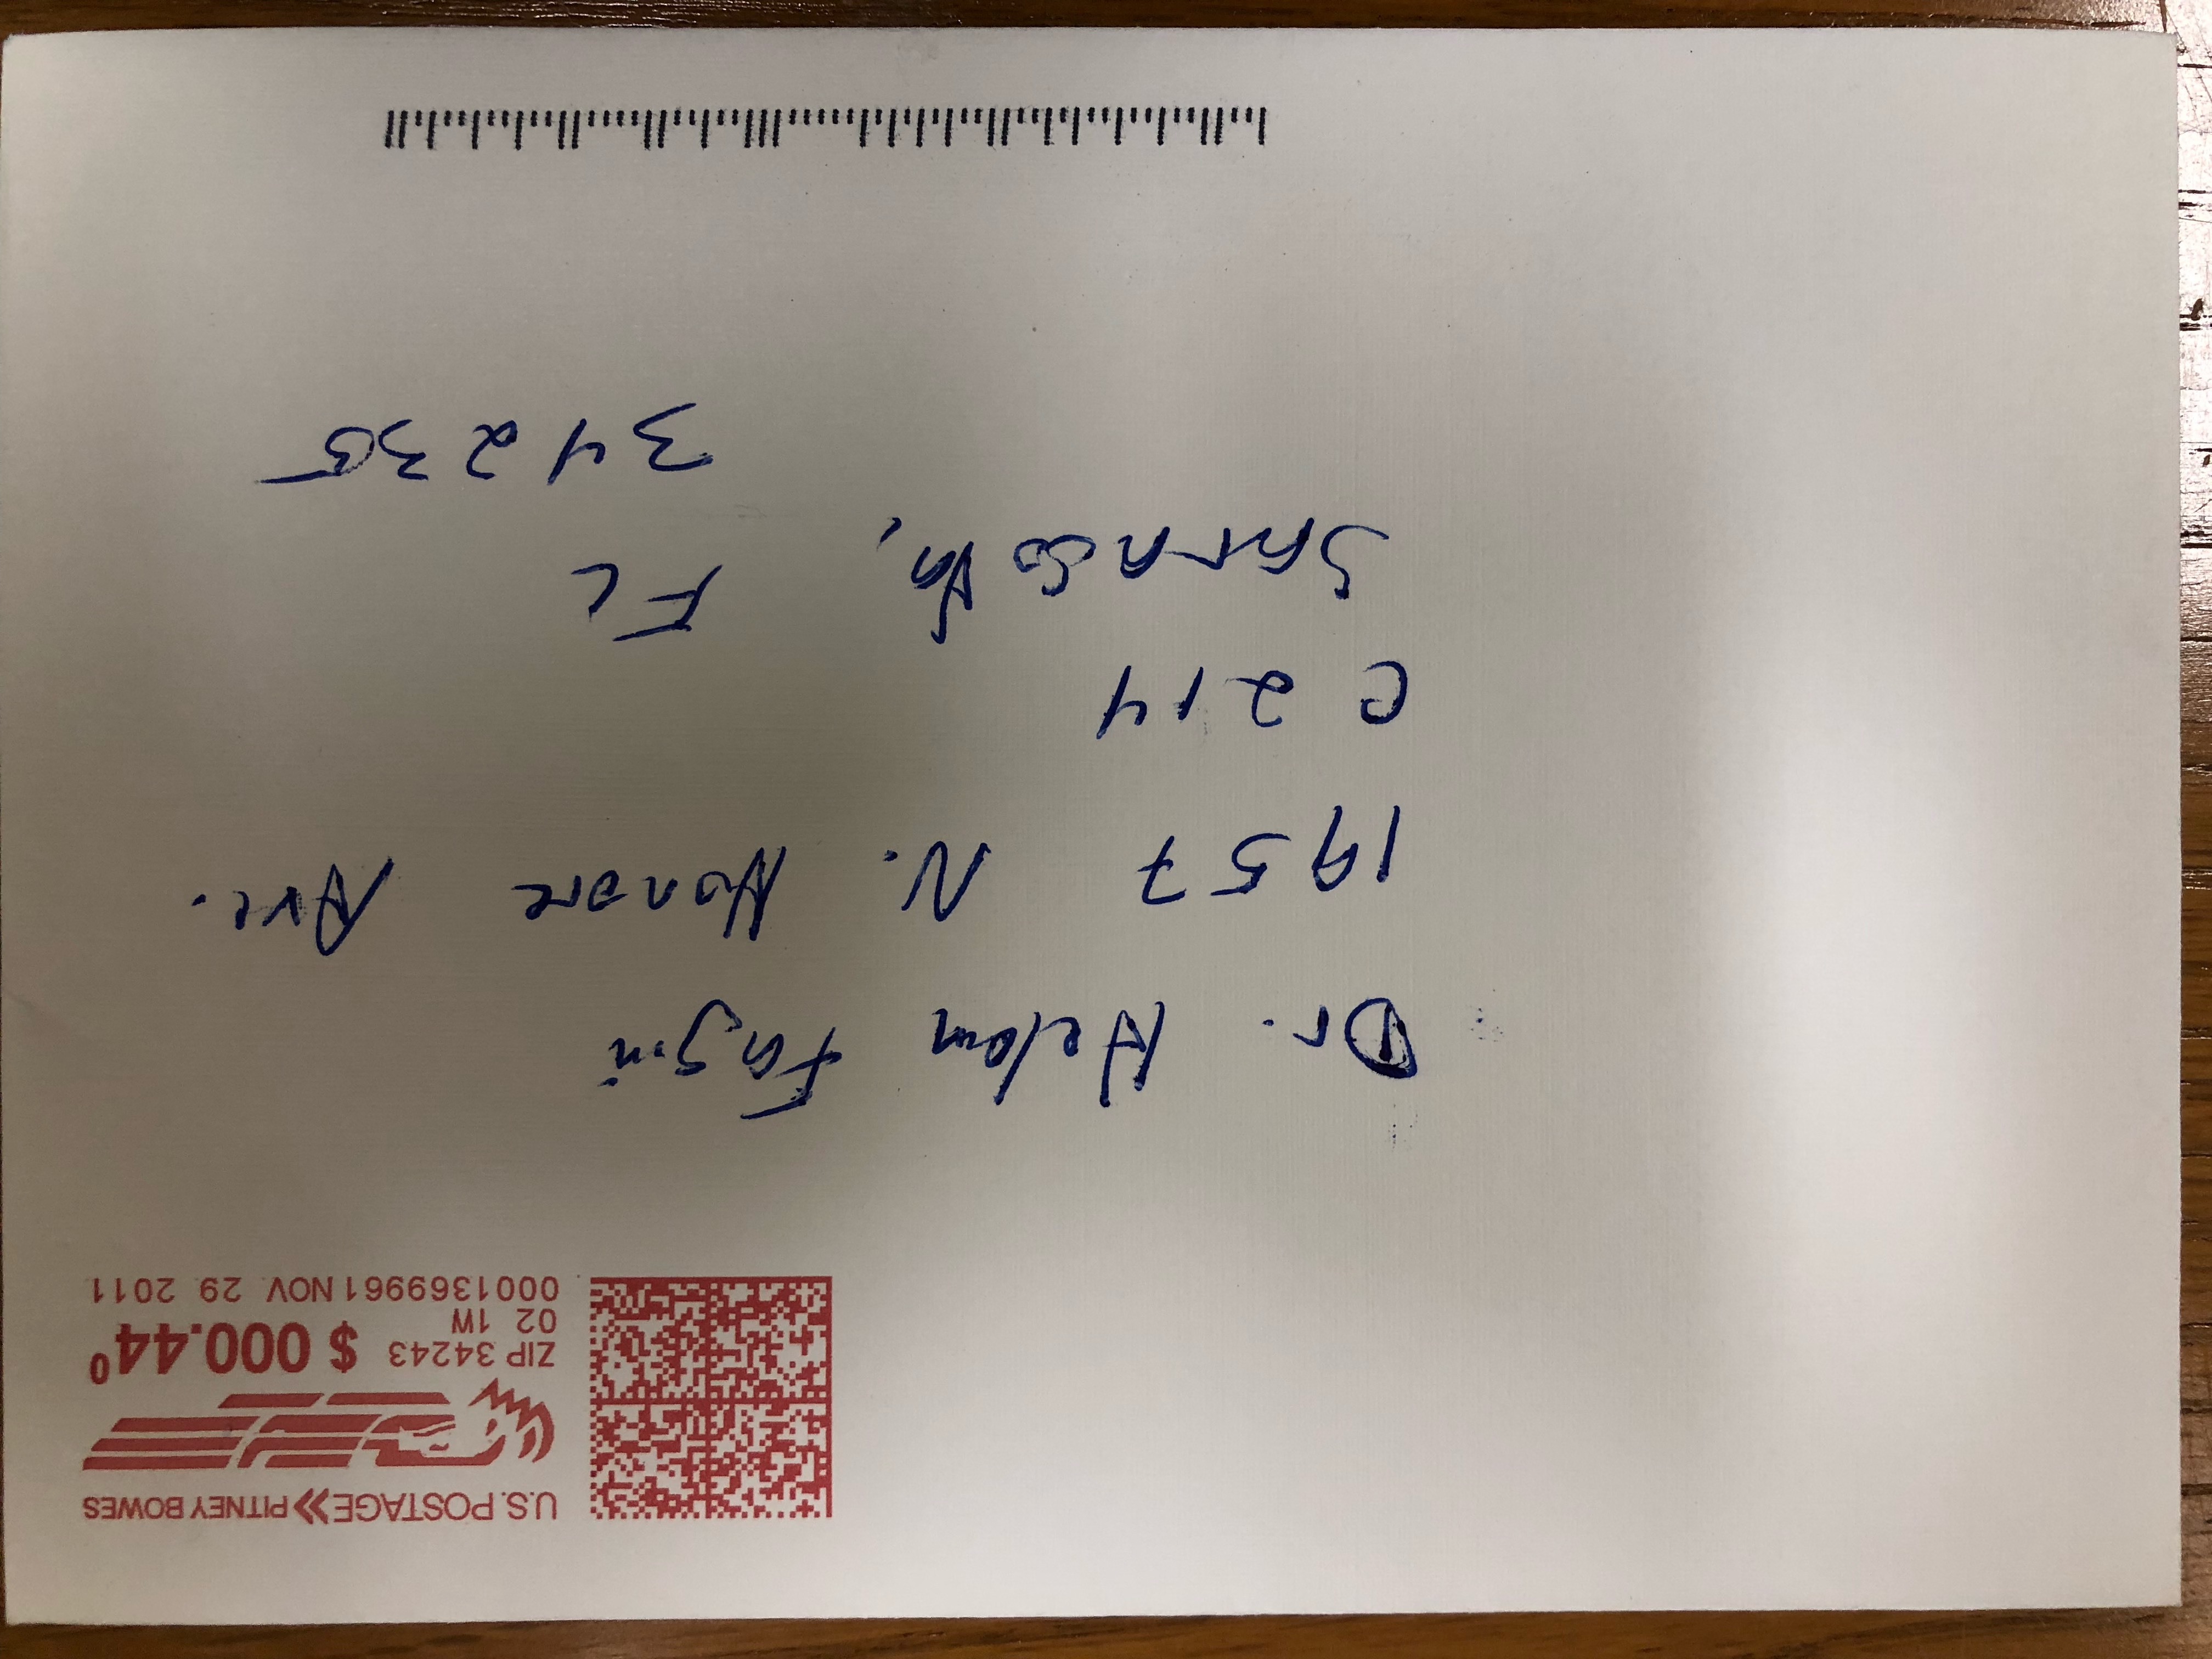 U.S. POSTAGE PITNEY BOWES
ZIP 34243 $ 000.44⁰
02 1W
0001369961 NOV 29 2011
Dr. Helen Fagin
1957 N. Honore Ave.
C 214
Sarasota, FL
34235